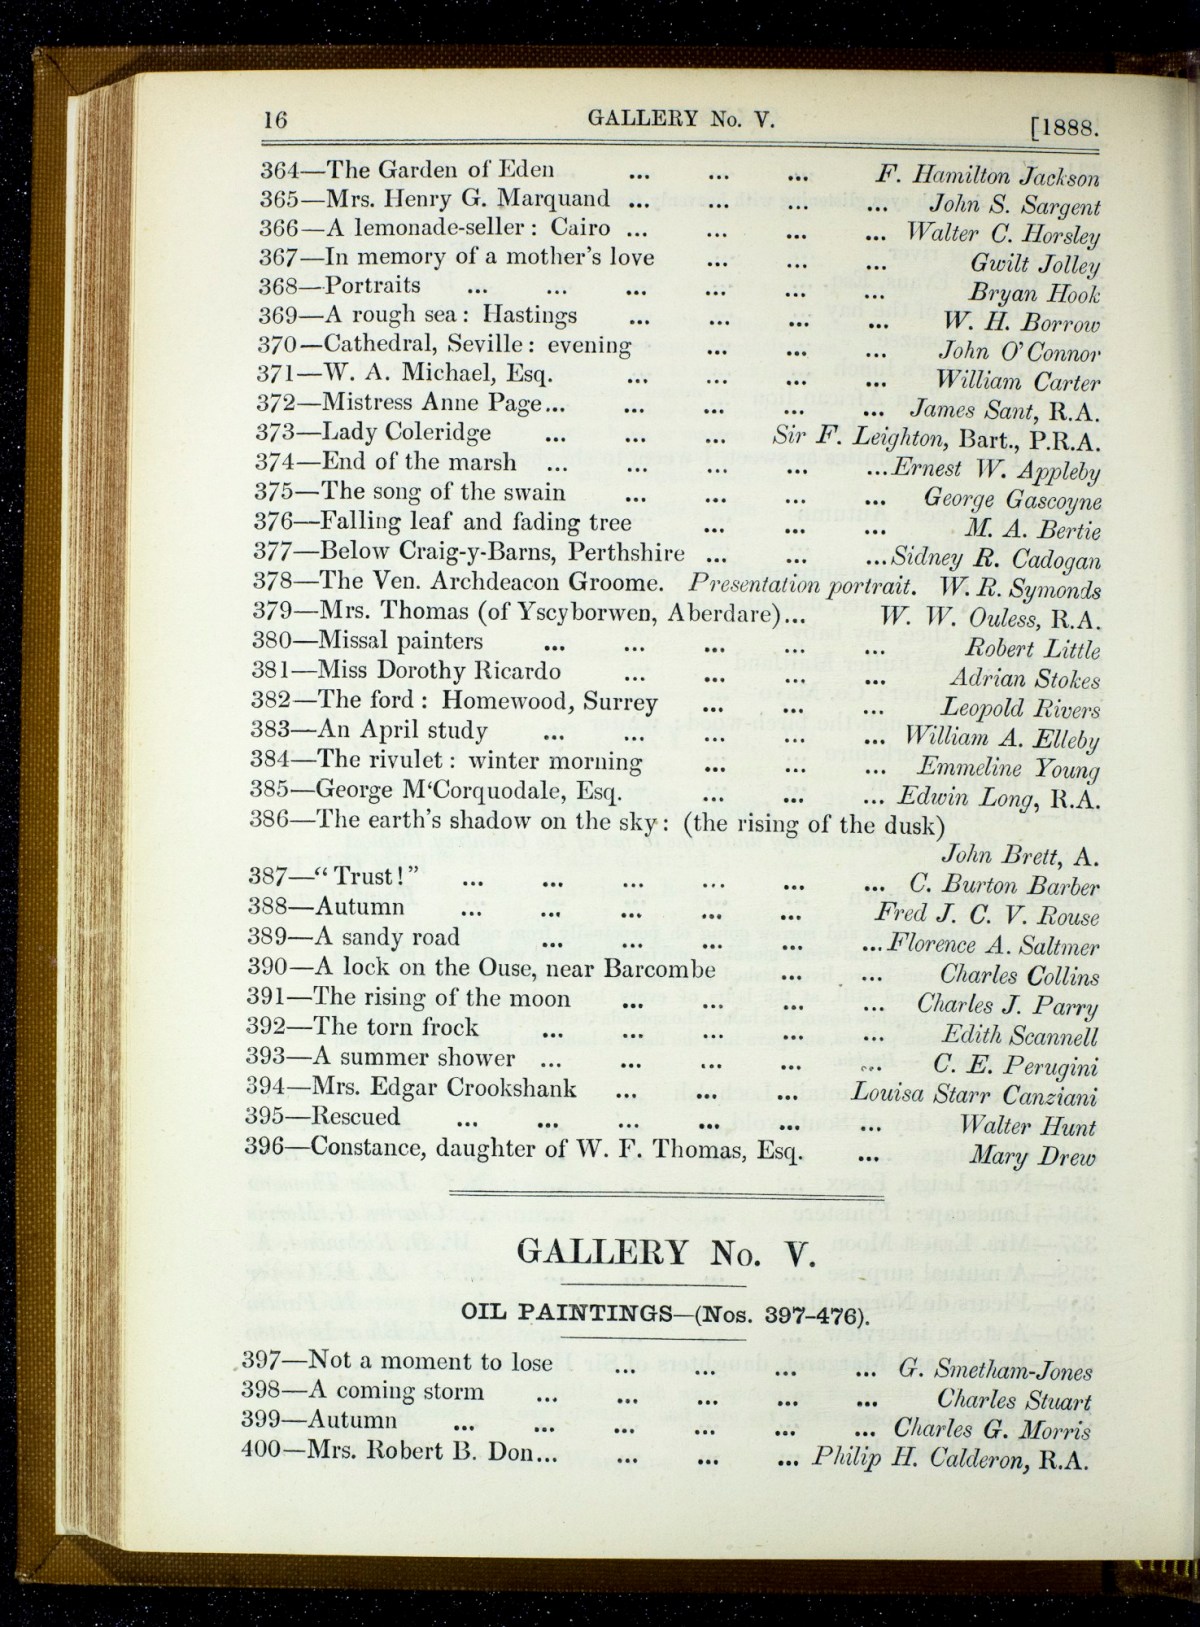 16 GALLERY No. V. [1888.
364—The Garden of Eden ... ... ... F. Hamilton Jackson
365—Mrs. Henry G. Marquand ... ... ... ... John S. Sargent
366—A lemonade-seller : Cairo ... ... ... ... Walter C. Horsley
367—In memory of a mother's love ... ... ... Gwilt Jolley
368—Portraits ... ... ... ... ... ... Bryan Hook
369—A rough sea : Hastings ... ... ... ... W. H. Borrow
370—Cathedral, Seville : evening ... ... ... John O'Connor
371—W. A. Michael, Esq. ... ... ... ... William Carter
372—Mistress Anne Page... ... ... ... ... James Sant, R.A.
373—Lady Coleridge ... ... ... Sir F. Leighton, Bart., P.R.A.
374—End of the marsh ... ... ... ... ...Ernest W. Appleby
375—The song of the swain ... ... ... ... George Gascoyne
376—Falling leaf and fading tree ... ... ... M. A. Bertie
377—Below Craig-y-Barns, Perthshire ... ... ...Sidney R. Cadogan
378—The Ven. Archdeacon Groome. Presentation portrait. W. R. Symonds
379—Mrs. Thomas (of Yscyborwen, Aberdare)... W. W. Ouless, R.A.
380—Missal painters ... ... ... ... ... Robert Little
381—Miss Dorothy Ricardo ... ... ... ... Adrian Stokes
382—The ford : Homewood, Surrey ... ... ... Leopold Rivers
383—An April study ... ... ... ... ... William A. Elleby
384—The rivulet : winter morning ... ... ... Emmeline Young
385—George M'Corquodale, Esq. ... ... ... Edwin Long, R.A.
386—The earth's shadow on the sky : (the rising of the dusk)
John Brett, A.
387—“ Trust ! ” ... ... ... ... ... ... C. Burton Barber
388—Autumn ... ... ... ... ... Fred J. C. V. Rouse
389—A sandy road ... ... ... ... ...Florence A. Saltmer
390—A lock on the Ouse, near Barcombe ... ... Charles Collins
391—The rising of the moon ... ... ... ... Charles J. Parry
392—The torn frock ... ... ... ... ... Edith Scannell
393—A summer shower ... ... ... ... ... C. E. Perugini
394—Mrs. Edgar Crookshank ... ... ... Louisa Starr Canziani
395—Rescued ... ... ... ... ... ... Walter Hunt
396—Constance, daughter of W. F. Thomas, Esq. ... Mary Drew
GALLERY No. V.
OIL PAINTINGS—(Nos. 397-476).
397—Not a moment to lose ... ... ... ... G. Smetham-Jones
398—A coming storm ... ... ... ... ... Charles Stuart
399—Autumn ... ... ... ... ... ... Charles G. Morris
400—Mrs. Robert B. Don... ... ... ... Philip H. Calderon, R.A.